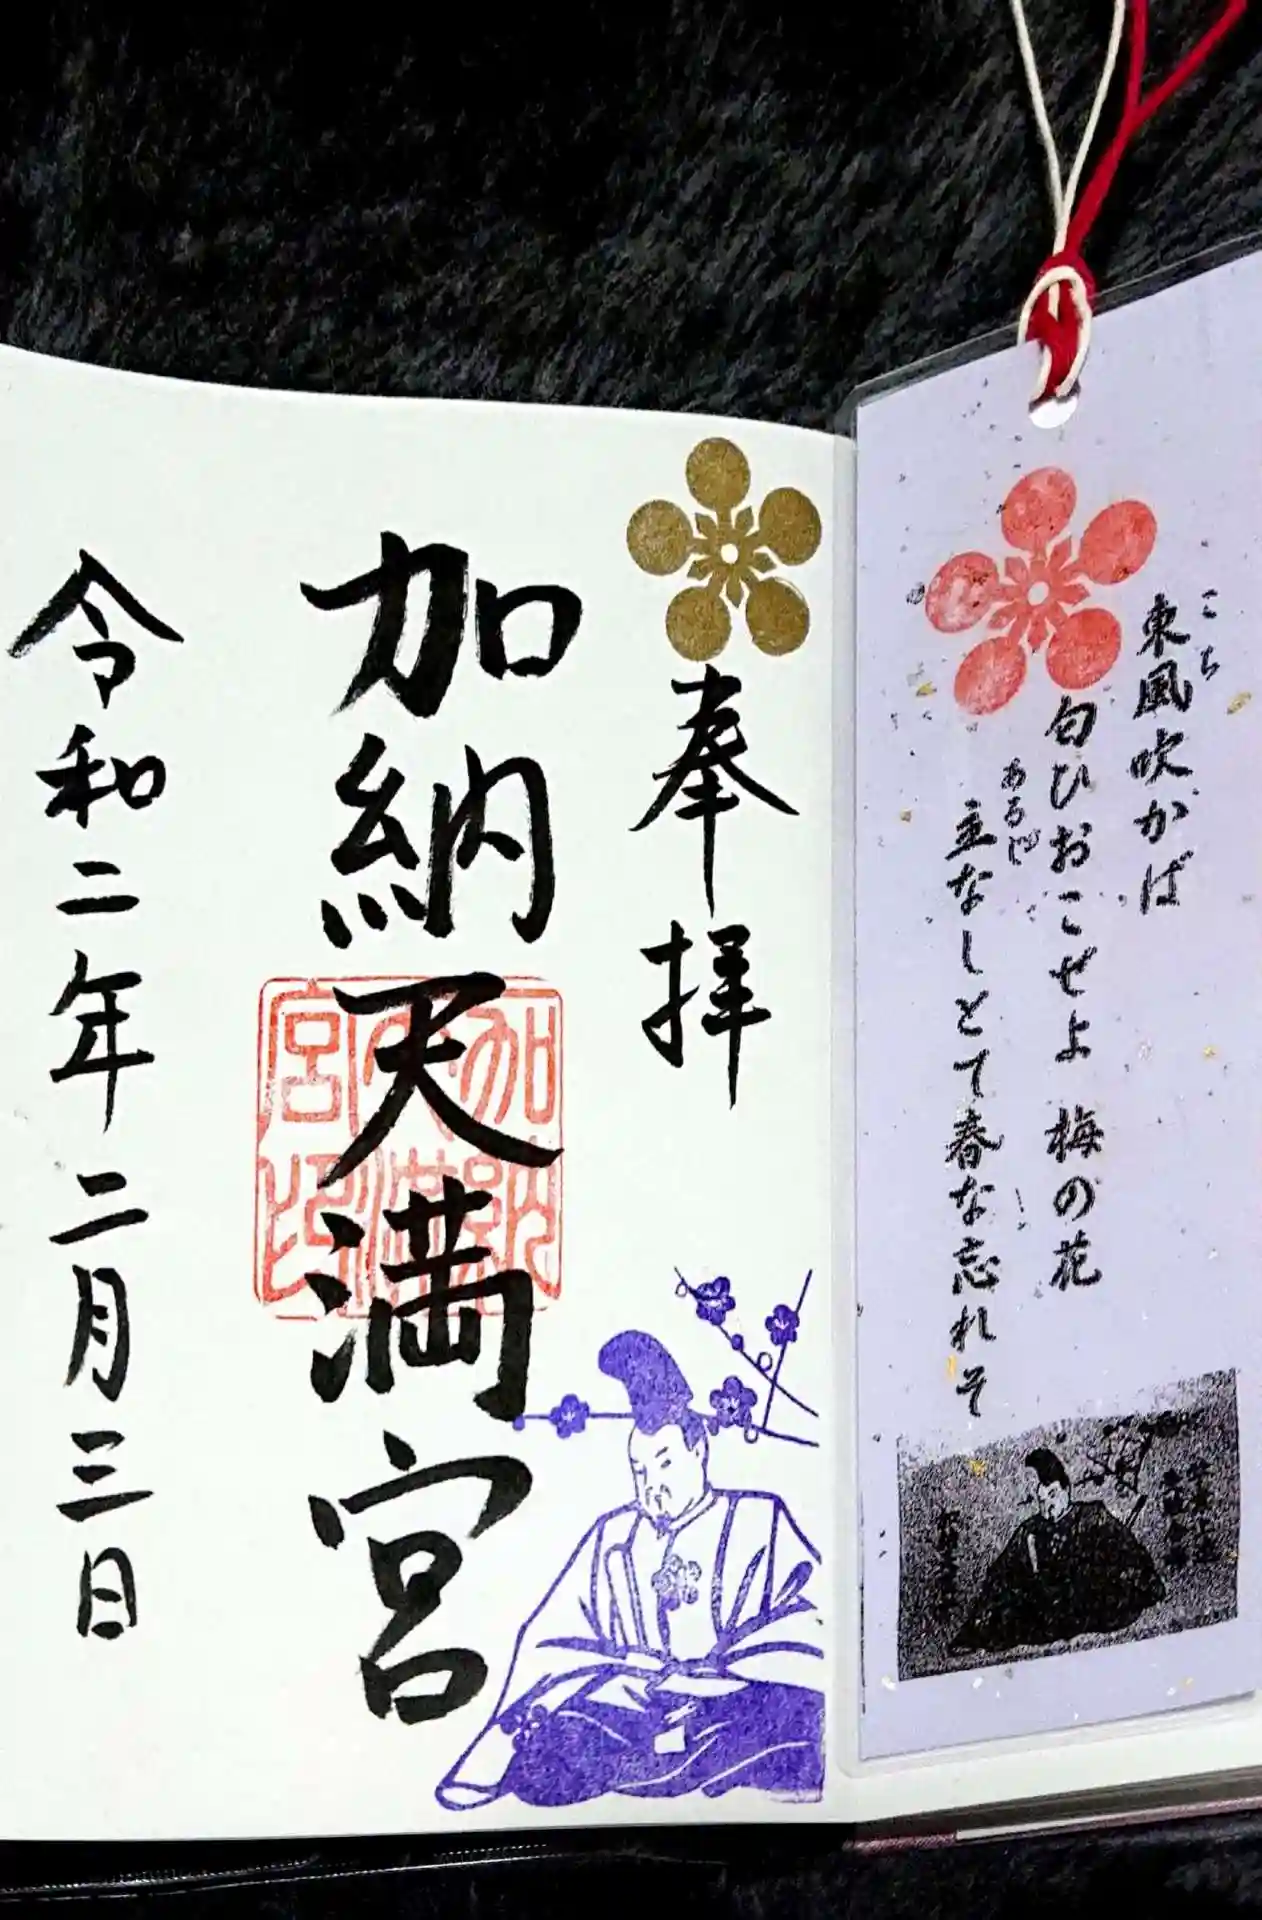 こち
東風吹かば
匂ひおこせよ 梅の花
あるじ
主なしとて春な忘れそ
奉拝
加納天満宮
加納天満宮印
令和二年二月三日